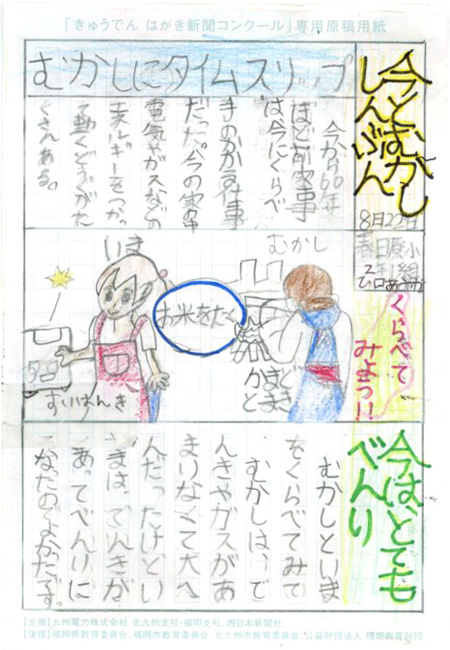 「きゅうでん はがき新聞コンクール」専用原稿用紙
今とむかし
しんぶん
8月22日
春日原小
むかしにタイムスリップ
今から60年
ほど前家事
は今にくらべ
きのかかる仕事
だった。今の家事
電気やガスなどの
エネルギーをつかっ
て動くどうぐがた
くさんある。
くらべて
みよう!!
むかし
かまど
いま
お米をたく
すいはんき
今は、とても
べんり
むかしといま
をくらべてみて
、むかしは、で
んきやガスがあ
まりなくて大へ
んだったけどい
まは、でんきが
あってべんりに
なたのでよかたです。
【主催】九州電力株式会社 北九州支社・福岡支社、西日本新聞社
【後援】福岡県教育委員会、福岡市教育委員会、北九州市教育委員会、公益財団法人 理想教育財団